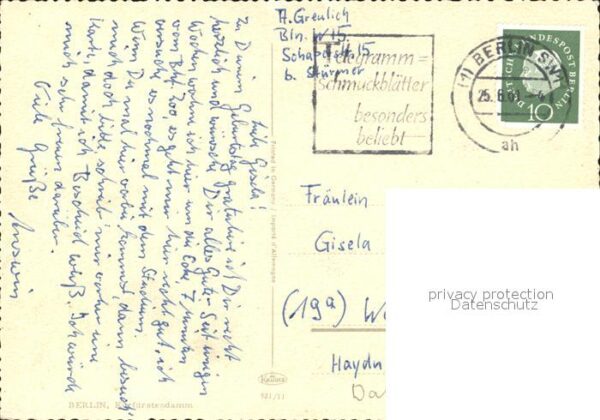 A. Greulich
Bln. W 15
Schaperstr. 15
b. Stürmer
Telegramm=
schmuckblätter
besonders
beliebt
(1) BERLIN SW
25.6.61
ah
DEUTSCHE BUNDESPOST BERLIN
10
Lieb Gisela!
Zu Deinem Geburtstag gratuliere ich Dir recht
herzlich und wünsche Dir alles Gute. Seit einigen
Wochen wohne ich hier um die Ecke, 7 Minuten
vom Bhf. Zoo, es geht mir hier recht gut, ich
versuche es nochmal mit dem Studium.
Wenn Du mal hier vorbei kommst, dann besuch
mich doch bitte, schreib mir vorher eine
Karte, damit ich Bescheid weiß. Ich würde
mich sehr freuen darüber.
Viele Grüße
Erwin
Printed in Germany / Imprimé d'Allemagne
Fräulein
Gisela
(19a) W
Haydn
Da
privacy protection
Datenschutz
Krüger
BERLIN, Kurfürstendamm